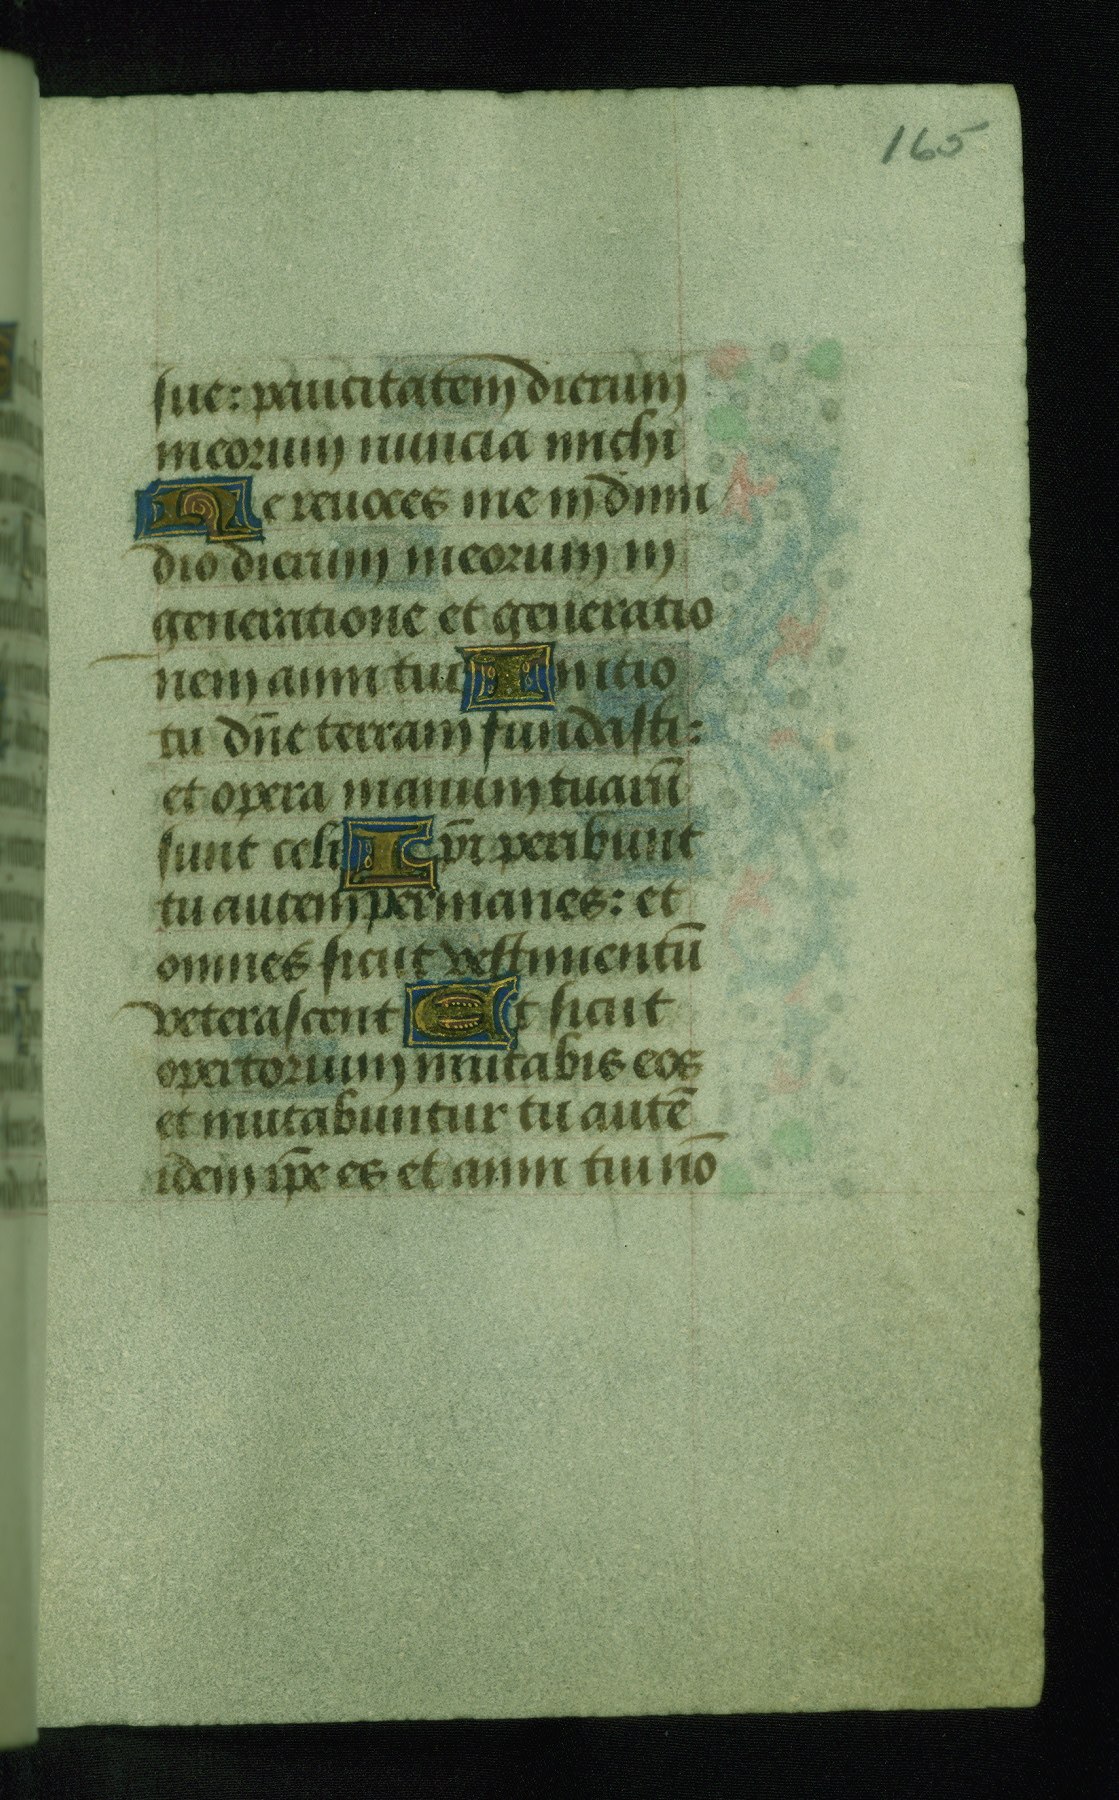 165
sue: paucitatem dierum
meorum nuncia michi
Ne revoces me in dimi
dio dierum meorum in
generatione et generatio
nem anni tui Initio
tu dñe terram fundasti:
et opera manuum tuarū
sunt celi Ip̄i peribunt
tu autem permanes: et
omnes sicut vestimentū
veterascent Et sicut
opertorium mutabis eos
et mutabuntur tu autē
idem ip̄e es et anni tui nō